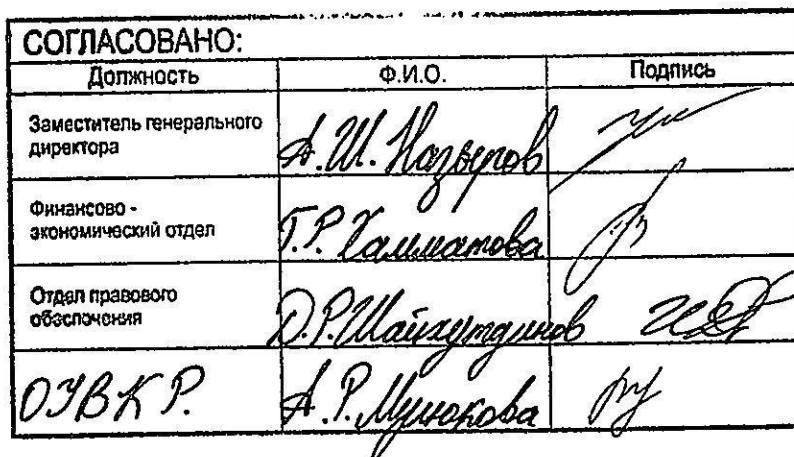 СОГЛАСОВАНО:
Должность Ф.И.О. Подпись
Заместитель генерального
директора
А.Ш. Назыров
Финансово -
экономический отдел
Г.Р. Хамматова
Отдел правового
обеспечения
Д.Р. Шайхутдинов
ОУВКР. А.Р. Мунюкова